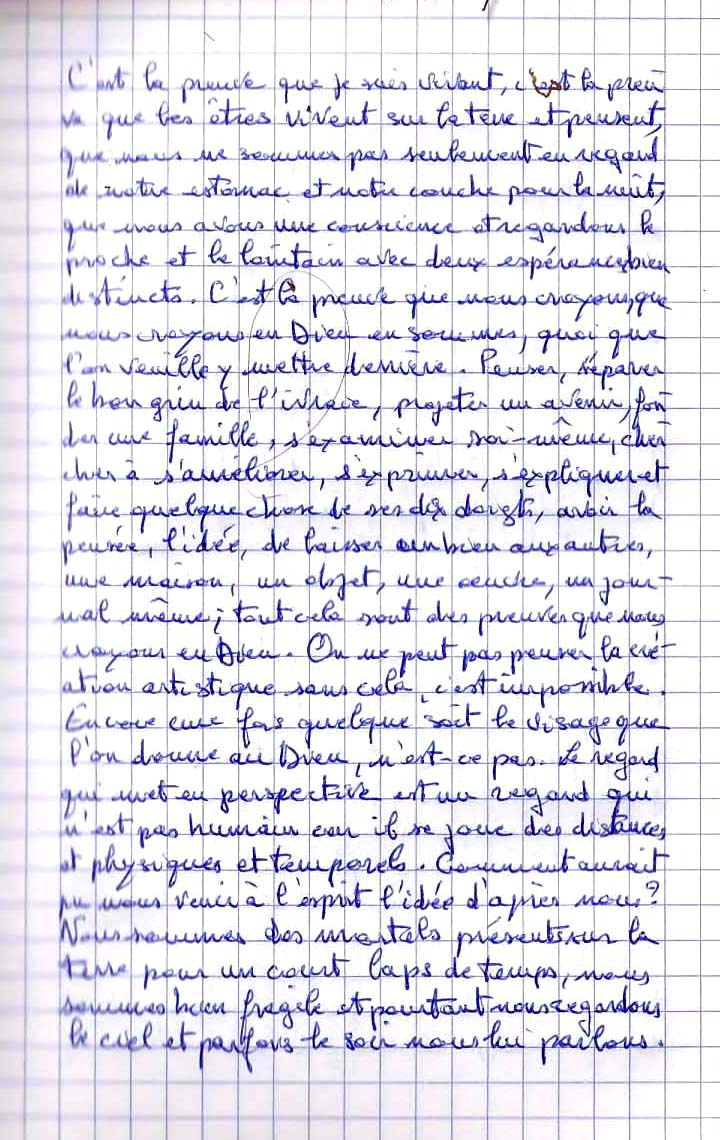 C'est la preuve que je suis vivant, c'est la preu
ve que les êtres vivent sur la terre et pensent,
que nous ne sommes pas seulement en regard
de notre estomac et notre couche pour la nuit,
que nous avons une conscience et regardons le
proche et le lointain avec deux espérances bien
distincts. C'est la preuve que nous croyons, que
nous croyons en Dieu en sommes, quoi que
l'on veuille y mettre derrière. Penser, séparer
le bon grin de l'ivraie, projeter un avenir, fon
der une famille, s'examiner soi-même, cher
cher à s'améliorer, s'exprimer, s'expliquer et
faire quelque chose de ses dix doigts, avoir la
pensée, l'idée, de laisser un bien aux autres,
une maison, un objet, une œuvre, un jour-
nal même ; tout cela sont des preuves que nous
croyons en Dieu. On ne peut pas penser la cré-
ation artistique sans cela, c'est impossible.
Encore une fois quelque soit le visage que
l'on donne au Dieu, n'est-ce pas. Le regard
qui met en perspective est un regard qui
n'est pas humain car il se joue des distances
et physiques et temporels. Comment aurait
pu nous venir à l'esprit l'idée d'après nous ?
Nous sommes des mortels présents sur la
terre pour un court laps de temps, nous
sommes bien fragile et pourtant nous regardons
le ciel et parfois le soir nous lui parlons.